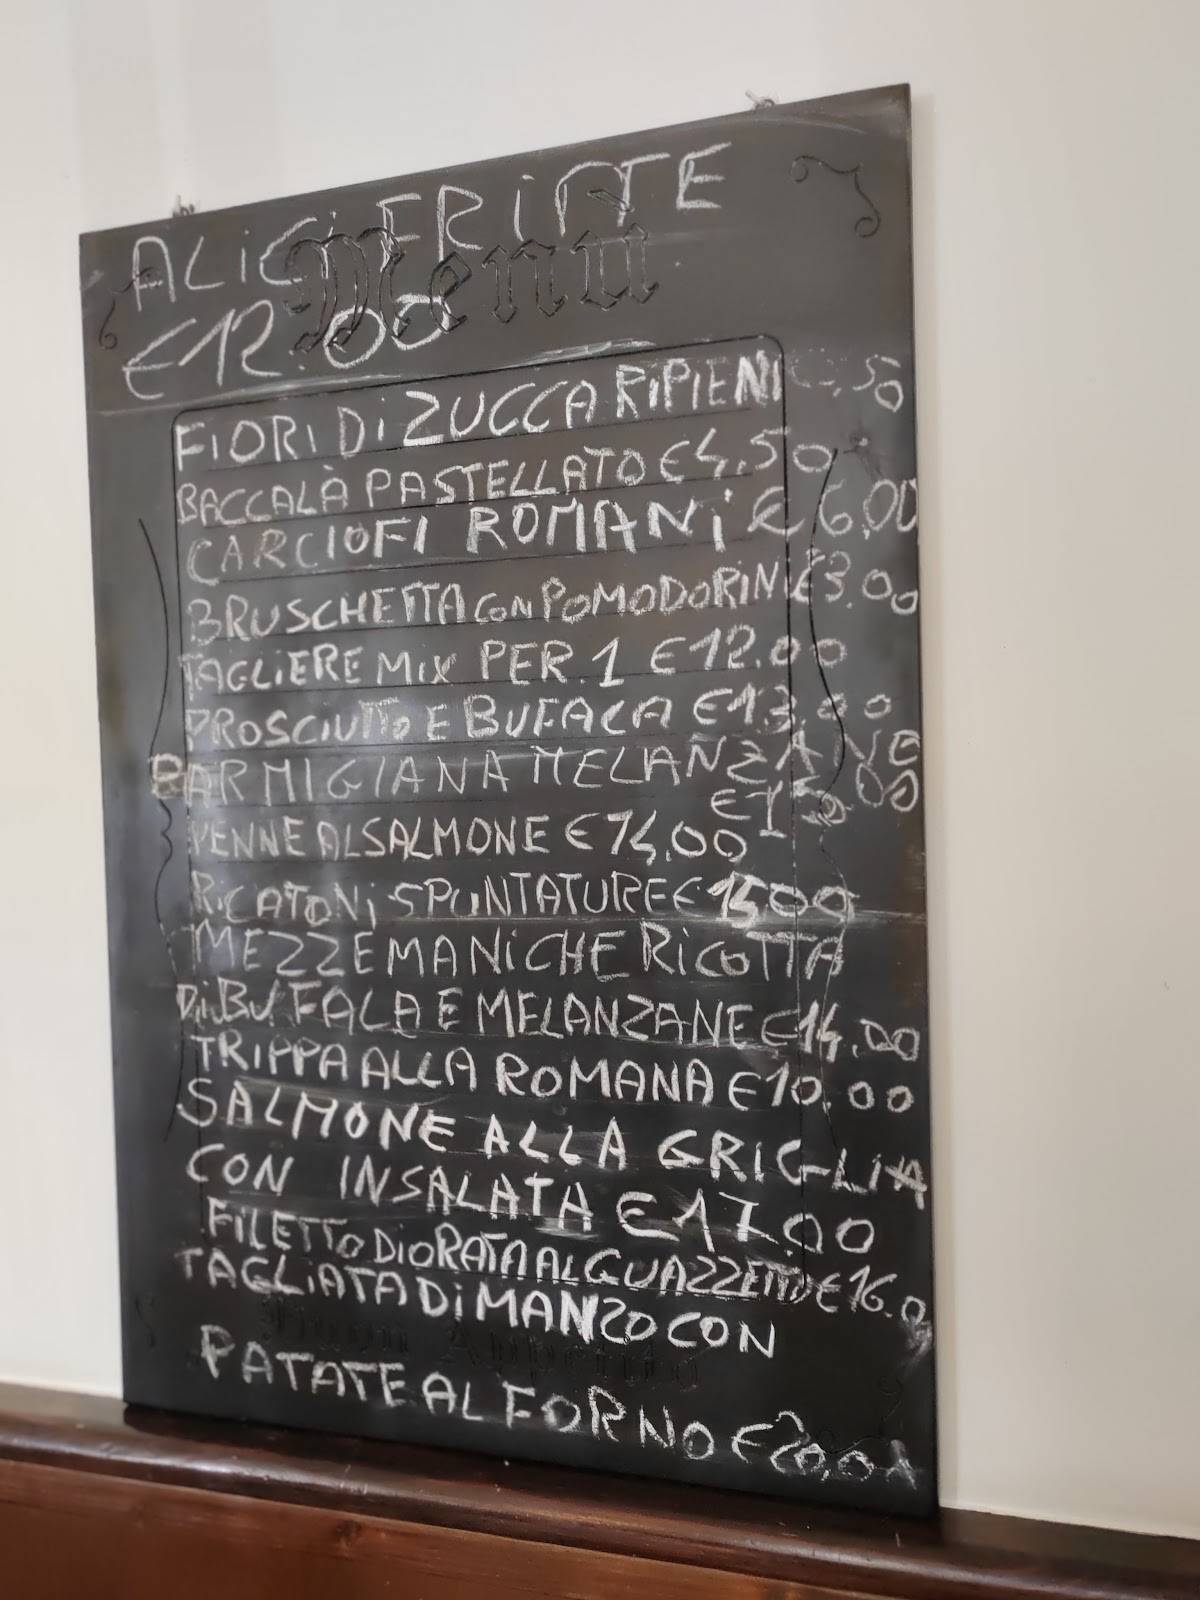 ALICI FRITTE
Menù
€12.00
FIORI DI ZUCCA RIPIENI
BACCALÀ PASTELLATO €4,50
CARCIOFI ROMANI €6,00
BRUSCHETTA CON POMODORINI €3.00
TAGLIERE MIX PER 1 €12.00
PROSCIUTTO E BUFALA €13.00
PARMIGIANA MELANZANE
PENNE AL SALMONE €14,00
RIGATONI SPUNTATURE €15,00
MEZZE MANICHE RICOTTA
DI BUFALA E MELANZANE €14,00
TRIPPA ALLA ROMANA €10,00
SALMONE ALLA GRIGLIA
CON INSALATA €17.00
FILETTO DI ORATA AL GUAZZETTO
TAGLIATA DI MANZO CON
Buon Appetito
PATATE AL FORNO €20,00